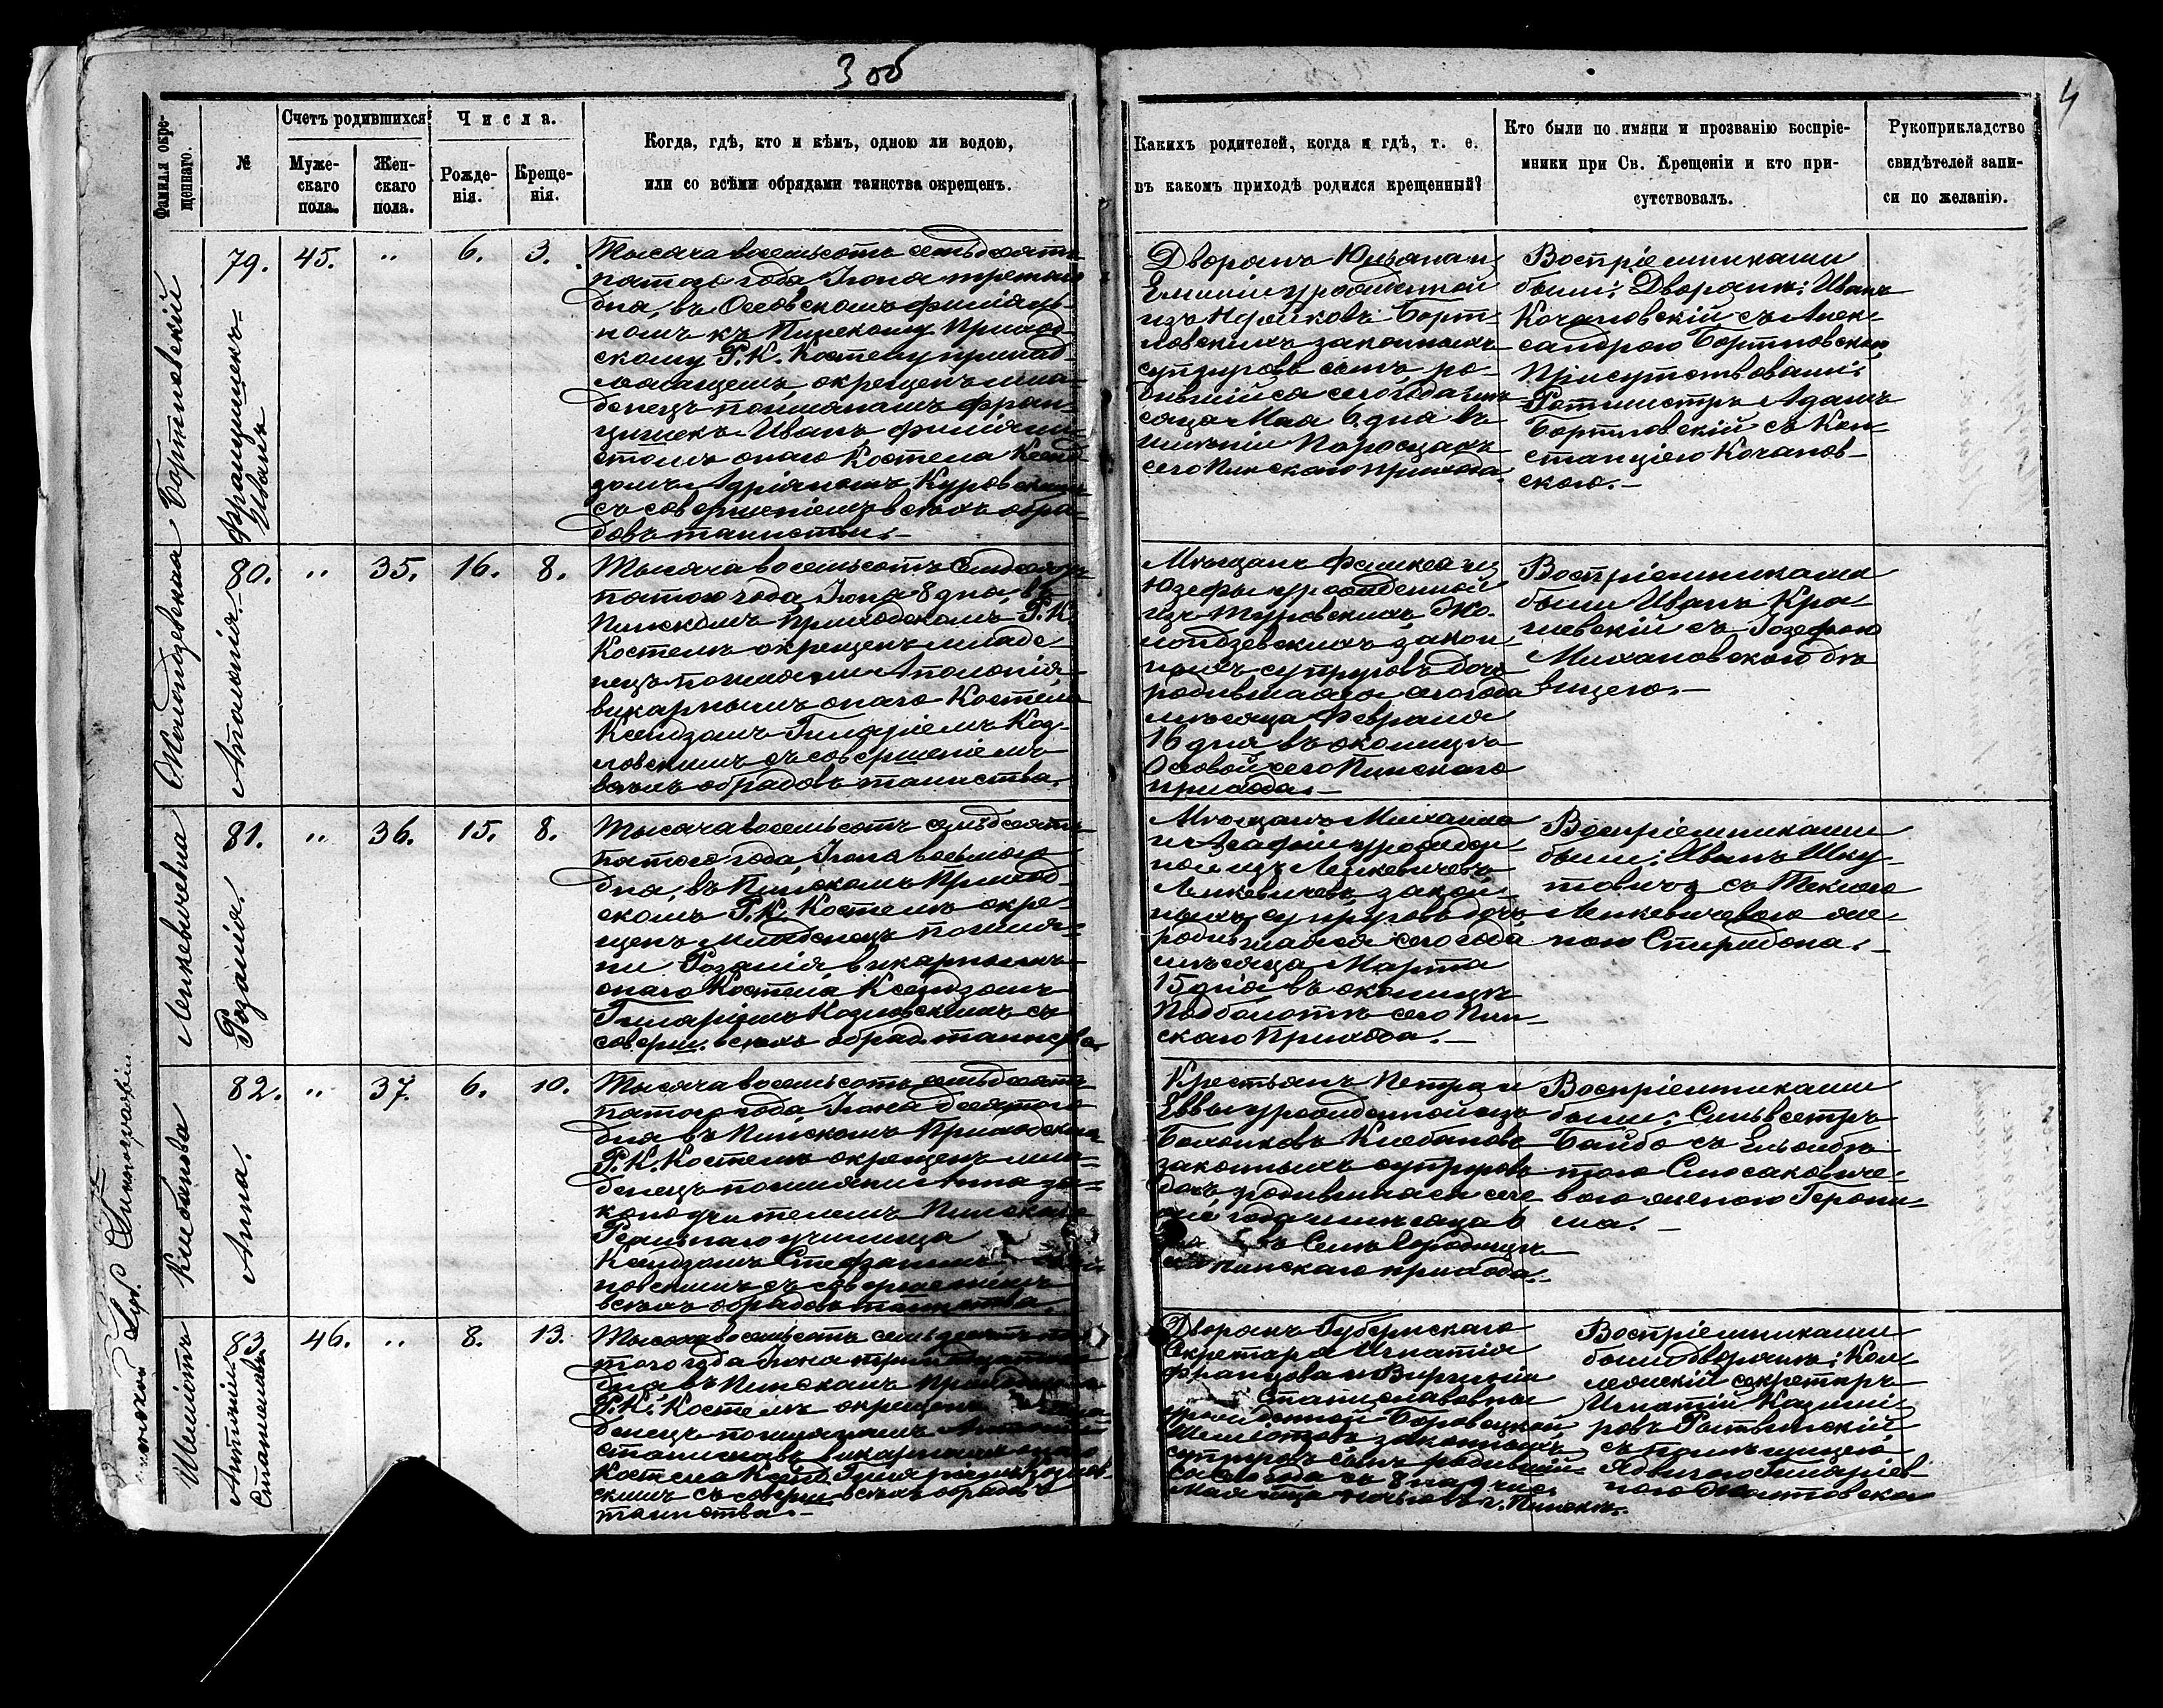 3 об
4
Фамилія окре-
щеннаго.
№
Счетъ родившихся
Муже-
скаго
пола.
Жен-
скаго
пола.
Числа.
Рожде-
нія.
Креще-
нія.
Когда, гдѣ, кто и кѣмъ, одною ли водою,
или со всѣми обрядами таинства окрещенъ.
Каихъ родителей, когда и гдѣ, т. е.
въ какомъ приходѣ родился крещенный?
Кто были по имяни и прозванію воспріе-
мники при Св. Крещеніи и кто при-
сутствовалъ.
Рукоприкладство
свидѣтелей запи-
си по желанію.
Бортновскій
79.
Францишекъ-
Иванъ
45.
"
6.
3.
Тысяча восемьсотъ семьдесятъ
пятаго года Іюня третьяго
дня, въ Осовскомъ филіаль-
номъ къ Пинскому Приход-
скому Р. К. Костелу принад-
лежащемъ, окрещенъ мла-
денецъ поимянамъ Фран-
цишекъ-Иванъ, филіали-
стомъ онаго Костела Ксенд-
зомъ Адріяномъ Куровскимъ
съ совершеніемъ всѣхъ обря-
довъ таинства.-
Дворянъ Юльяна и
Емиліи урожденной
изъ Борт-
новскихъ законныхъ
супруговъ сынъ, ро-
дившійся сего года мѣ-
сяца Мая 6 дня въ
имѣніи Поросцахъ
сего Пинскаго прихода.
Воспріемниками
были: Дворяне: Иванъ
Кочановскій съ Алек-
сандрою Бортновскою,
Присутствовали:
Ротмистръ Адамъ
Бортновскій съ Кон-
станціею Кочанов-
скою.-
Жолондзевская
80.
Аполонія.
"
35.
16.
8.
Тысяча восемьсотъ семьдесятъ
пятаго года, Іюня 8 дня въ
Пинскомъ Приходскомъ Р. К.
Костелѣ окрещенъ младе-
нецъ поимяни Аполонія,
викарнымъ онаго Костела
Ксендзомъ Гиляріемъ Коз-
ловскимъ съ совершеніемъ
всѣхъ обрядовъ таинства.
Мѣщанъ Феликса и
Юзефы урожденной
изъ Туровскихъ Жо-
лондзевскихъ закон-
ныхъ супруговъ дочь
родившаяся сего года
мѣсяца Февраля
16 дня въ околицѣ
Осовой сего Пинскаго
прихода.-
Воспріемниками
были Иванъ Кра-
шевскій съ Іозефою
Михаловскою дѣ-
вицею.-
Ленкевичевна
81.
Розалія.
"
36.
15.
8.
Тысяча восемьсотъ семьдесятъ
пятаго года, Іюня восьмаго
дня, въ Пинскомъ Приход-
скомъ Р. К. Костелѣ окре-
щенъ младенецъ поимя-
ни Розалія, викарнымъ
онаго Костела Ксендзомъ
Гиляріемъ Козловскимъ съ
соверш. всѣхъ обряд. таинства
Мѣщанъ Михаила
и Агафіи урожден-
ной изъ Ленкевичевъ
Ленкевичевъ, закон-
ныхъ супруговъ дочь
родившаяся сего года
мѣсяца Марта
15 дня въ околицѣ
Подболотѣ сего Пин-
скаго Прихода.-
Воспріемниками
были: Иванъ Шку-
товичъ съ Теклею
Ленкевичевою же-
ною Спиридона.-
Клебанова
82.
Анна.
"
37.
6.
10.
Тысяча восемьсотъ семьдесятъ
пятаго года, Іюня десятаго
дня въ Пинскомъ Приходскомъ
Р. К. Костелѣ окрещенъ мла-
денецъ поимяни Анна за-
коноучителемъ Пинскаго
Реальнаго училища
Ксендзомъ Стефаномъ
новскимъ съ совершеніемъ
всѣхъ обрядовъ таинства.
Крестьянъ Петра и
Еввы урожденной изъ
Клебановъ
законныхъ супруговъ
дочь родившаяся сего
года мѣсяца 6
въ Селѣ Городищѣ
сего Пинскаго прихода.-
Воспріемниками
были: Сильвестръ
Байбо съ Ельжбѣ-
тою Слюсаковиче-
вою женою Герони-
ма.-
Шеліотъ
83
Антоній-
Станиславъ
46.
"
8.
13.
Тысяча восемьсотъ семьдесятъ пя-
таго года Іюня тринадцатаго
дня въ Пинскомъ Приходскомъ
Р. К. Костелѣ окрещенъ мла-
денецъ поимянамъ Антоній
Станиславъ, викарнымъ онаго
Костела Ксендз. Гиляріемъ Козлов-
скимъ съ соверш. всѣхъ обрядовъ
таинства.-
Дворянъ Губернскаго
Секретаря Игнатія
Францова и Виргиніи
Станиславовны
урожденной Боровецкой
Шеліотовъ законныхъ
супруговъ сынъ родившій-
ся сего года съ 8 на 9 чис.
Мая м-ца ночью въ г. Пинскѣ.-
Воспріемниками
были дворяне: Кол-
лежскій секретарь
Игнатій Казимі-
ровъ Ротвинскій
съ помѣщицею
Ядвигою Гиляріев-
ною